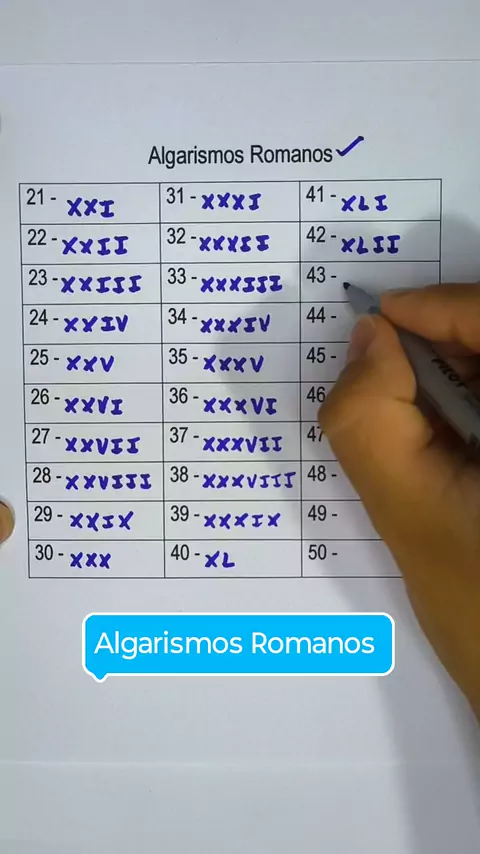 Algarismos Romanos
21 - XXI 31 - XXXI 41 - XLI
22 - XXII 32 - XXXII 42 - XLII
23 - XXIII 33 - XXXIII 43 -
24 - XXIV 34 - XXXIV 44 -
25 - XXV 35 - XXXV 45 -
26 - XXVI 36 - XXXVI 46
27 - XXVII 37 - XXXVII 47
28 - XXVIII 38 - XXXVIII 48 -
29 - XXIX 39 - XXXIX 49 -
30 - XXX 40 - XL 50 -
PILOT
Algarismos Romanos